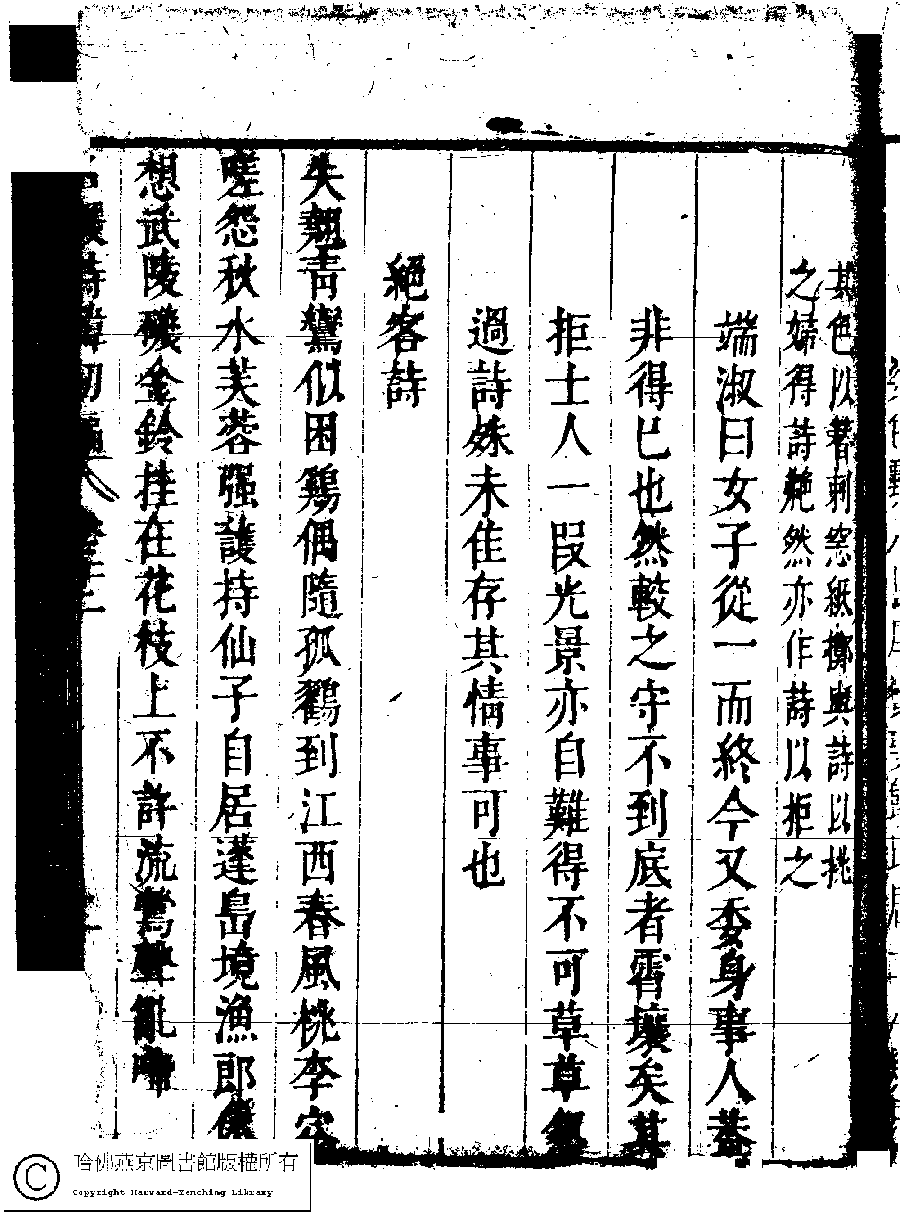 其色以簪刺窓紙擲與詩以挑
之婦得詩艴然亦作詩以拒之
端淑曰女子從一而終今又委身事人蓋
非得已也然較之守不到底者霄壤矣其
拒士人一段光景亦自難得不可草草
過詩姝未佳存其情事可也
絕客詩
失翹青鸞似困鷄偶隨孤鶴到江西春風桃李
嗟怨秋水芙蓉强護持仙子自居蓬島境漁郎
想武陵磯金鈴挂在花枝上不許流鶯聲亂啼
哈佛燕京圖書館版權所有
Copyright Harvard-Yenching Library